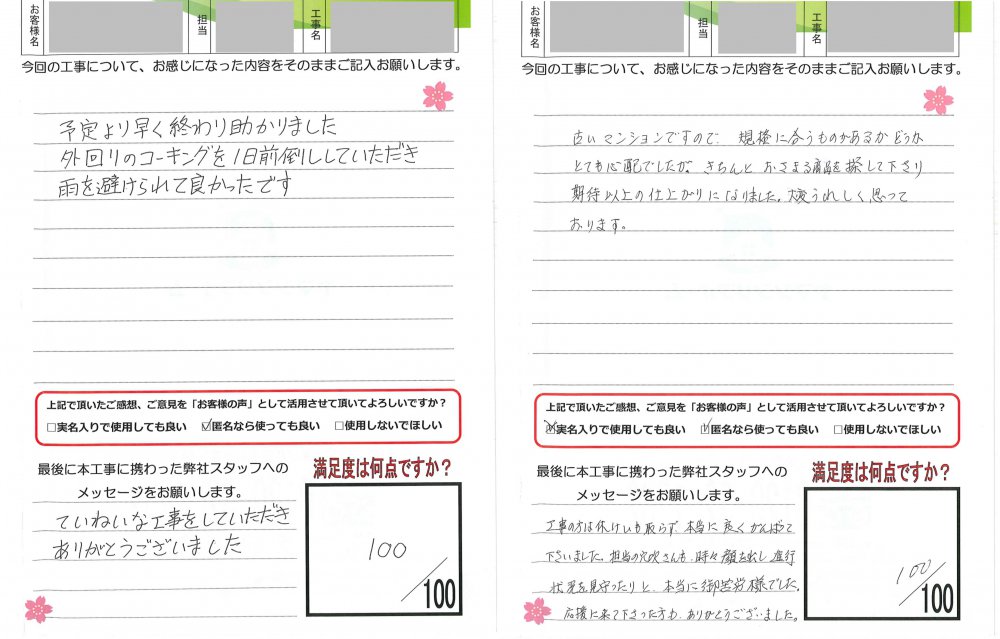 お客様名
担当
工事名
今回の工事について、お感じになった内容をそのままご記入お願いします。
予定より早く終わり助かりました
外回りのコーキングを1日前倒ししていただき
雨を避けられて良かったです
上記で頂いたご感想、ご意見を「お客様の声」として活用させて頂いてよろしいですか？
□実名入りで使用しても良い ☑匿名なら使っても良い □使用しないでほしい
最後に本工事に携わった弊社スタッフへの
メッセージをお願いします。
ていねいな工事をしていただき
ありがとうございました
満足度は何点ですか？
100
/100
お客様名
担当
工事名
今回の工事について、お感じになった内容をそのままご記入お願いします。
古いマンションですので、規格に合うものがあるかどうか
とても心配でしたが、きちんとおさまる商品を探して下さり
期待以上の仕上がりになりました。大変うれしく思って
おります。
上記で頂いたご感想、ご意見を「お客様の声」として活用させて頂いてよろしいですか？
☒実名入りで使用しても良い ☑匿名なら使っても良い □使用しないでほしい
最後に本工事に携わった弊社スタッフへの
メッセージをお願いします。
工事の方は休けいも取らず、本当に良くがんばって
下さいました。担当の穴吹さんも、時々顔を出し進行
状況を見守ったりと、本当に御苦労様でした。
応援に来て下さった方も、ありがとうございました。
満足度は何点ですか？
100
/100